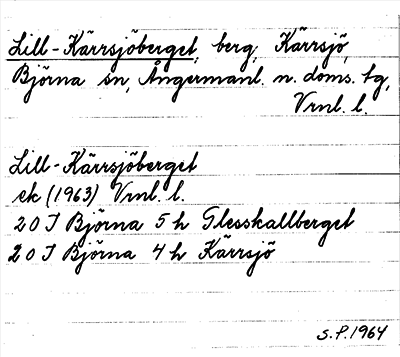 Lill-Kärrsjöberget, berg, Kärrsjö,
Björna sn, Ångermanl. n. doms. tg,
Vrnl. l.
Lill-Kärrsjöberget
ek (1963) Vrnl. l.
20 J Björna 5 h Glesskallberget
20 J Björna 4 h Kärrsjö
S.P. 1964